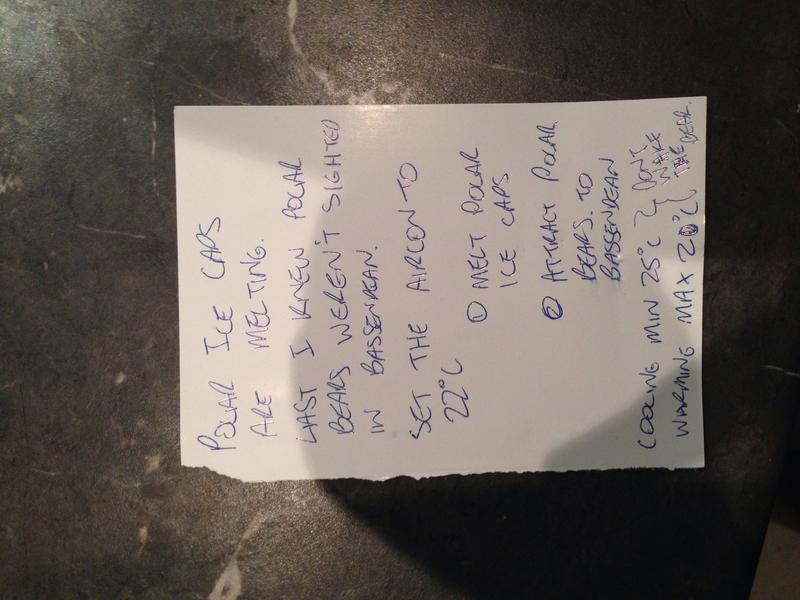 POLAR ICE CAPS
ARE MELTING.
LAST I KNEW POLAR
BEARS WEREN'T SIGHTED
IN BASSENDEAN.
SET THE AIRCON TO
22°C
① MELT POLAR
ICE CAPS
② ATTRACT POLAR
BEARS. TO
BASSENDEAN
COOLING MIN 25°C
WARMING MAX 20°C
DON'T
WAKE
THE BEAR.